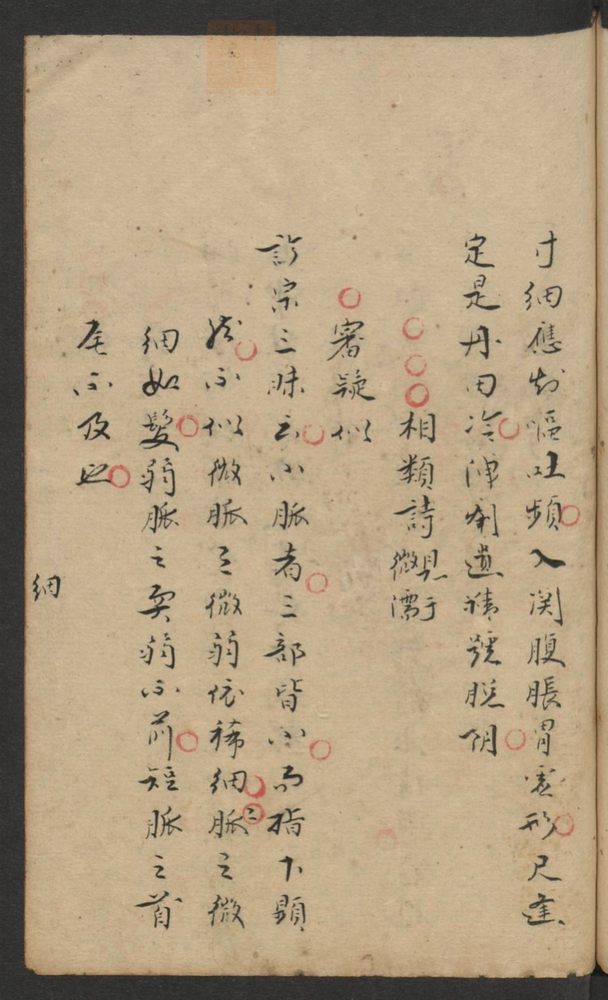 寸細應知嘔吐頻入関腹脹胃虛形尺逢
定是丹田冷泄痢遺精號脫陰
相類詩見于微濡
審疑似
診宗三昧云小脈者三部皆小而指下顯
然不似微脈之微弱依稀細脈之微
細如髮弱脈之耎弱不前短脈之首
尾不及也
細